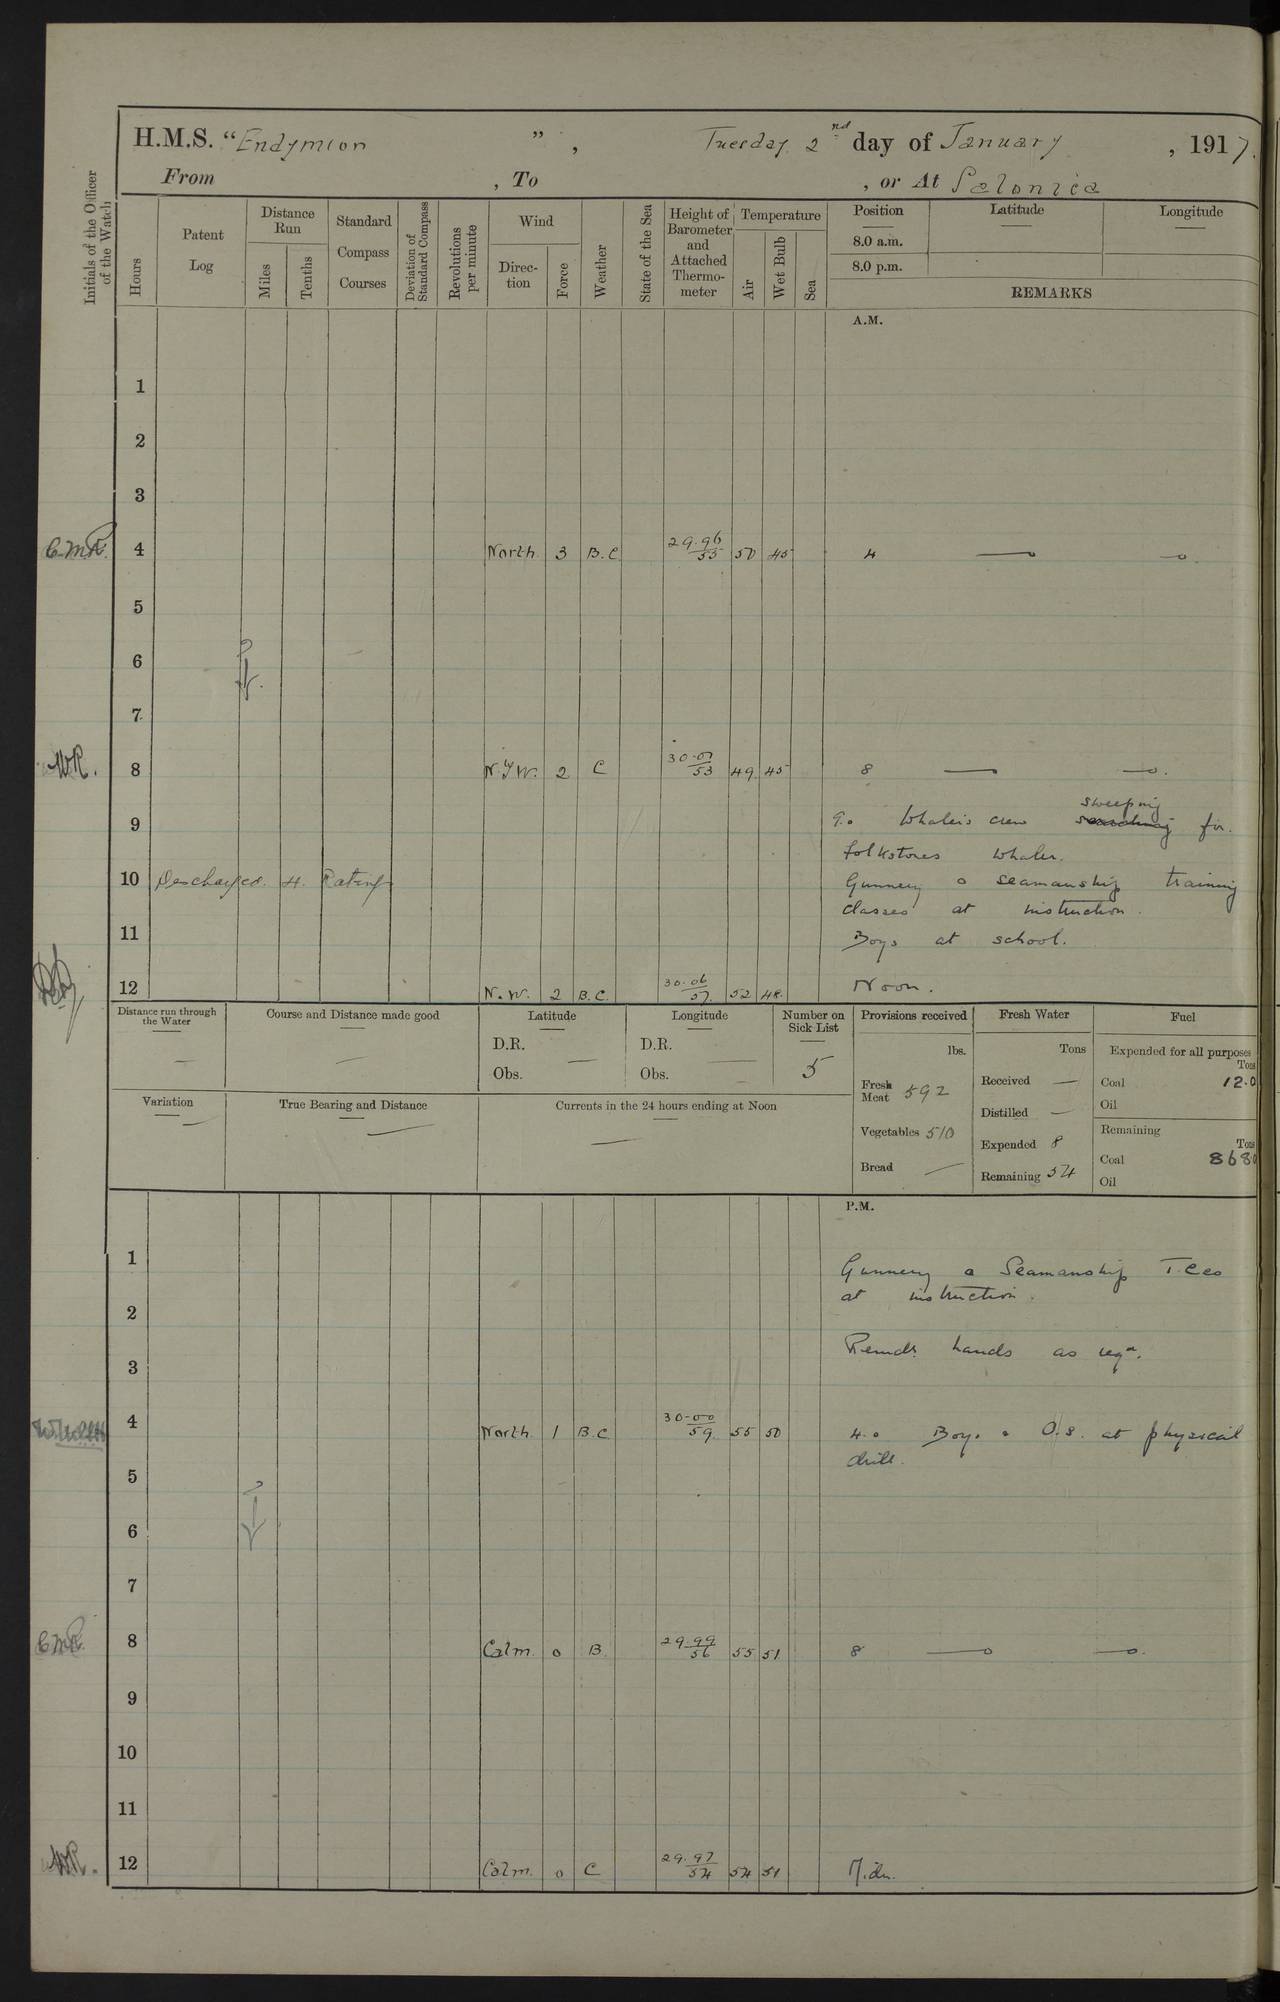 H.M.S. "Endymion", Tuesday 2nd day of January, 1917.
From , To , or At Salonica
Initials of the Officer of the Watch
Hours
Patent Log
Distance Run
Miles
Tenths
Standard Compass Courses
Deviation of Standard Compass
Revolutions per minute
Wind
Direc-tion
Force
Weather
State of the Sea
Height of Barometer and Attached Thermo-meter
Temperature
Air
Wet Bulb
Sea
Position Latitude Longitude
8.0 a.m.
8.0 p.m.
REMARKS
A.M.
1
2
3
4 North 3 B.C 29.96/55 50 45 4
5
6
7
8 N.W. 2 C 30.01/53 49 45 8
sweeping
9 9.0 Whalers crew searching for
folkstones whaler.
10 Discharged. 4. Ratings Gunnery & Seamanship training
classes at instruction.
11 Boys at school.
12 N.W. 2 B.C. 30.06/57 52 48. Noon.
Distance run through the Water —
Course and Distance made good —
Latitude
D.R.
Obs. —
Longitude
D.R.
Obs. —
Number on Sick List
5
Variation —
True Bearing and Distance —
Currents in the 24 hours ending at Noon —
Provisions received
lbs.
Fresh Meat 592
Vegetables 510
Bread —
Fresh Water
Tons
Received —
Distilled —
Expended 8
Remaining 54
Fuel
Expended for all purposes
Tons
Coal 12.0
Oil
Remaining
Tons
Coal 868
Oil
P.M.
1 Gunnery & Seamanship T.Ces
at instruction.
2
3 Remdr. hands as reqd.
4 North 1 B.C. 30.00/59 55 50 4.0 Boys & O.S. at physical
drill.
5
6
7
8 Calm. 0 B. 29.99/56 55 51 8
9
10
11
12 Calm. 0 C 29.97/54 54 51 Midn.